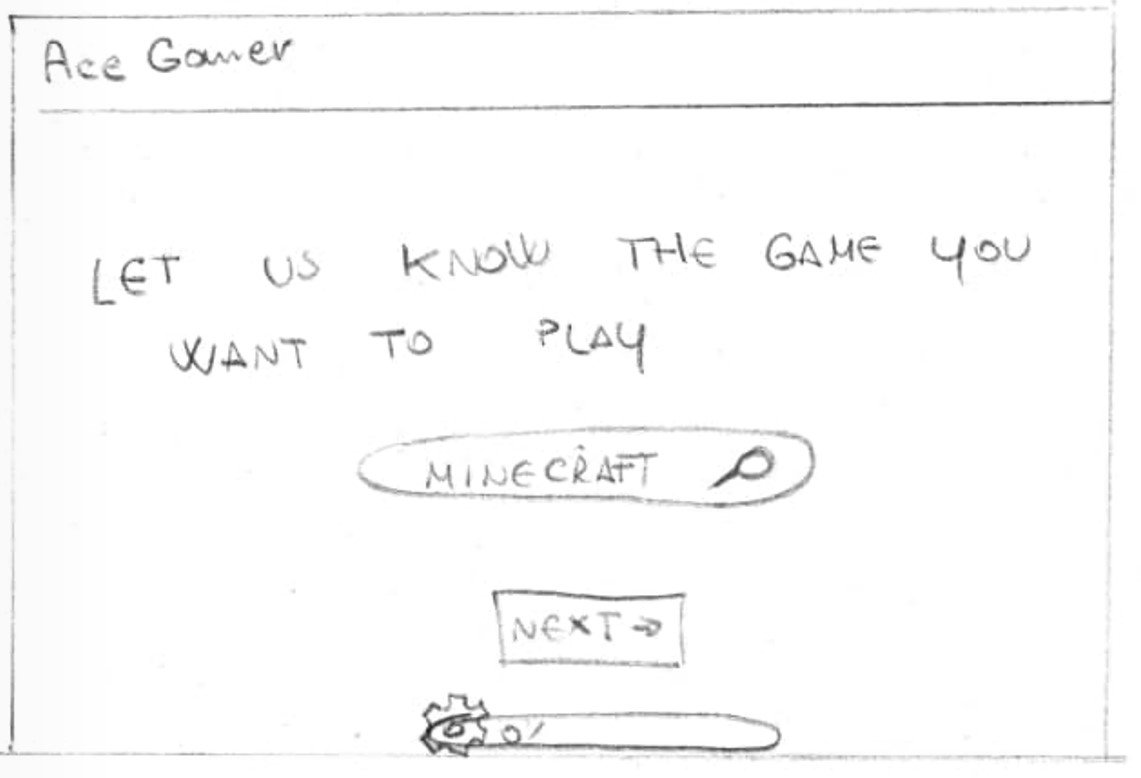 Ace Gamer
LET US KNOW THE GAME YOU
WANT TO PLAY
MINECRAFT
NEXT →